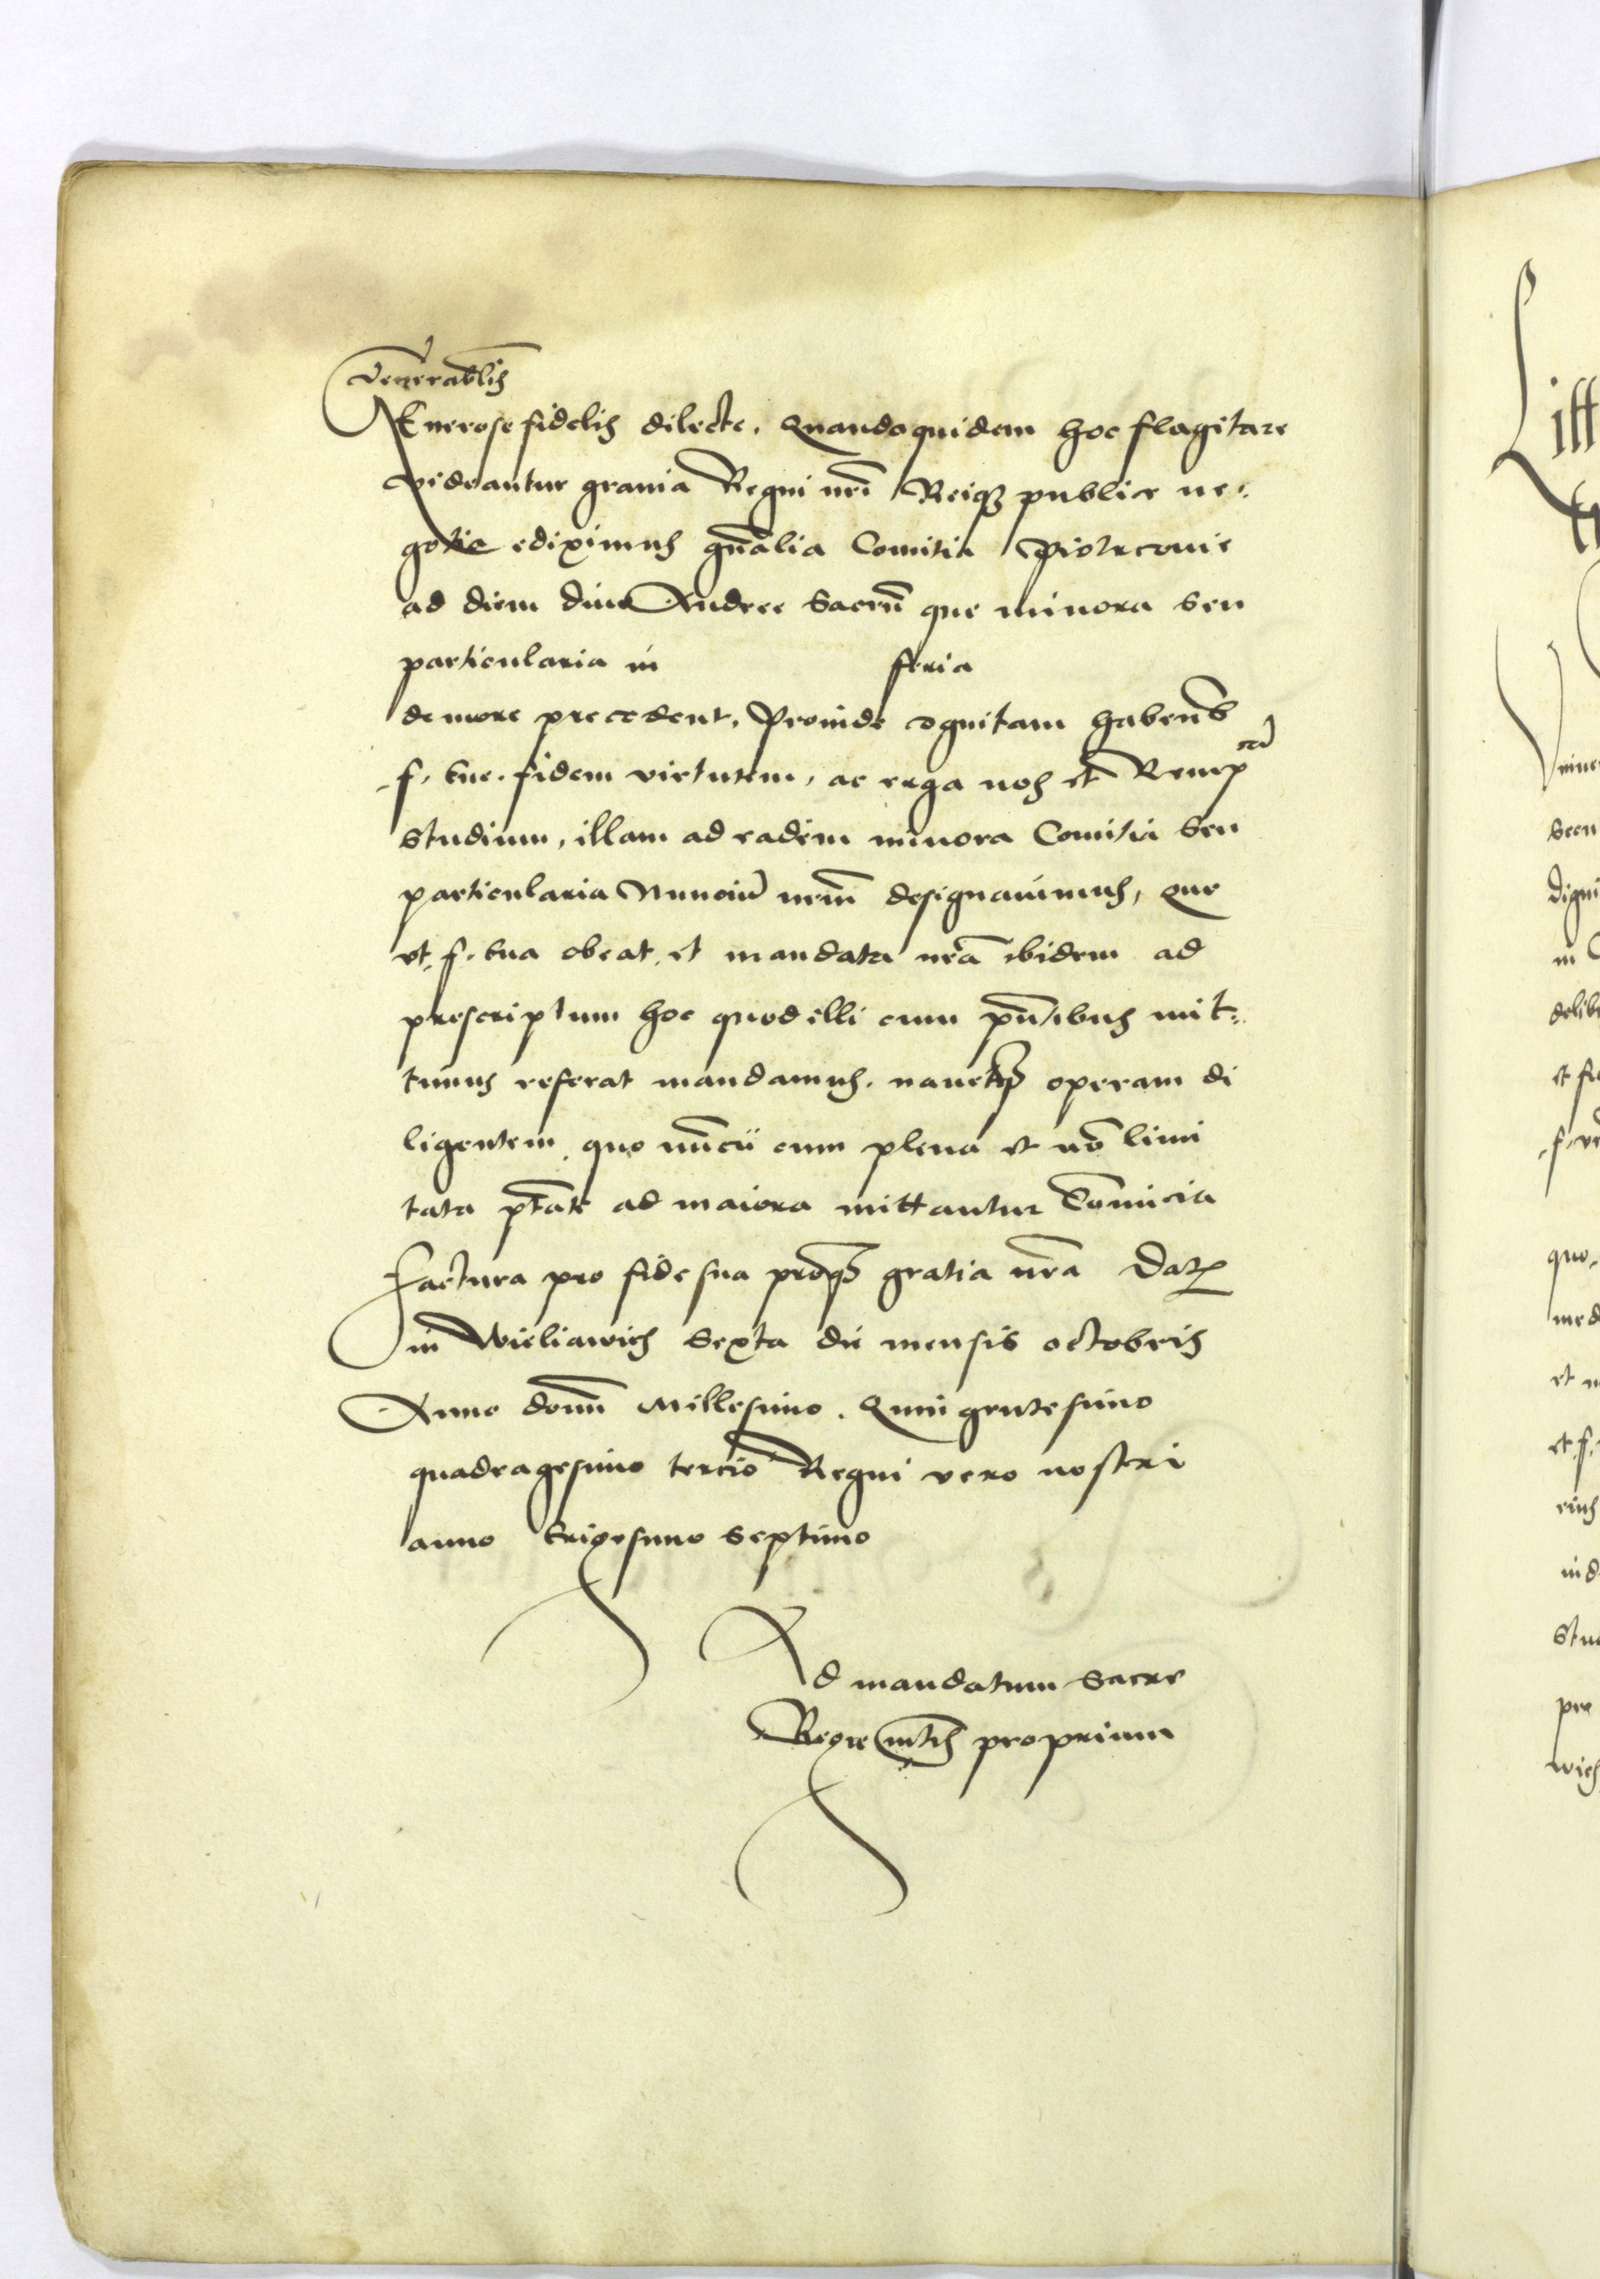 Venerabilis
GEnerose fidelis dilecte. Quandoquidem hoc flagitare
videantur gravia Regni nri Reiqз publice ne-
gotia ediximus gnalia Comitia Piotrcovie
ad diem divi Andree Sacrũ que minora seu
particularia in feria
de more precedent. Proinde cognitam habentes
f. tue. fidem virtutem, ac erga nos et Remp cam
studium, illam ad eadem minora Comitia seu
particularia Nunciũ nrm̃ designavimus, que
vt. f. tua obeat, et mandata nrã ibidem ad
prescriptum hoc quod illi cum pñtibus mit-
timus referat mandamus. navetqз operam di
ligentem, quo nũcii cum plena et nõ limi
tata ptãte ad maiora mittantur Comicia
Factura pro fide sua proqз gratia nrã Dat
in Wieliawich Sexta die mensis octobris
Anno domĩ Millesimo. Quingentesimo
quadragesimo tercio Regni vero nostri
anno trigesimo septimo
Ad mandatum Sacre
Regie mtis proprium